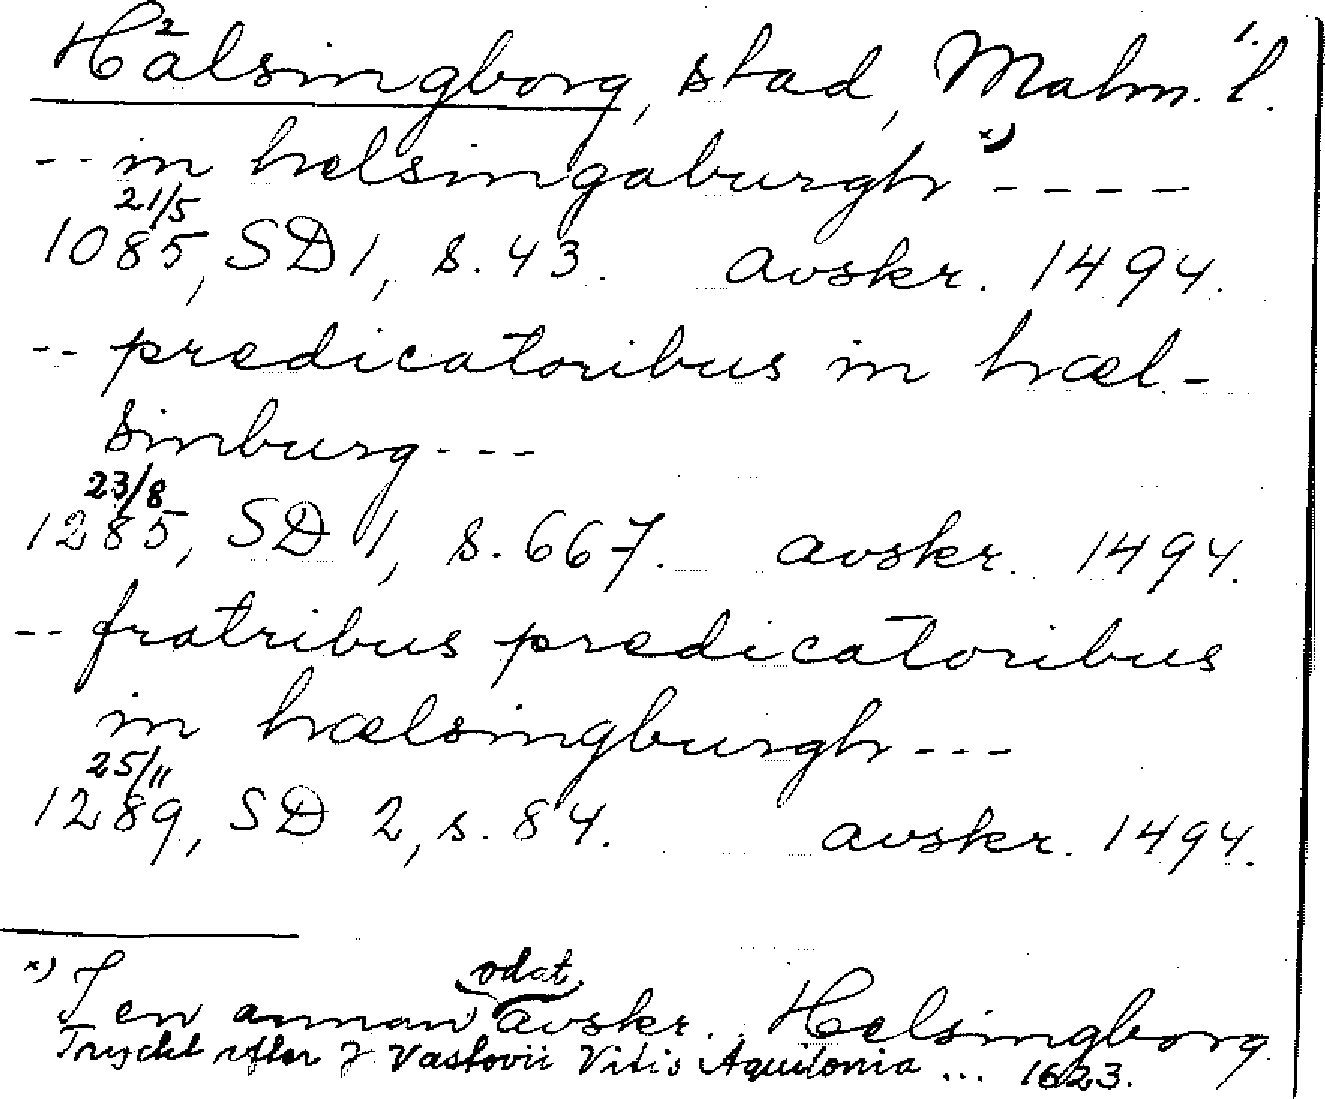 Hälsingborg, stad, Malm. l. 1.
-- in helsingaburgh x) ----
21/5
1085, SD 1, s. 43. avskr. 1494.
-- predicatoribus in hæl-
sinburg ---
23/8
1285, SD 1, s. 667. avskr. 1494.
-- fratribus predicatoribus
in hælsingburgh ---
25/11
1289, SD 2, s. 84. avskr. 1494.
odat.
x) I en annan avskr. Helsingborg
Tryckt efter J Vastovii Vitis Aquilonia ... 1623.